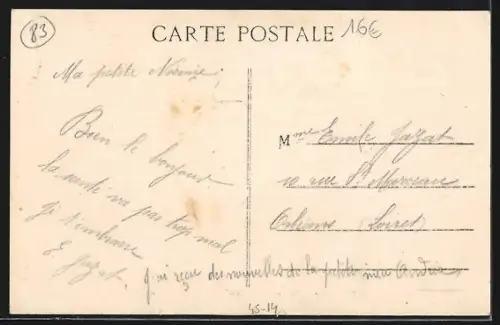 83
CARTE POSTALE
16€
Ma petite
Bien le bonjour
la santé va pas trop mal
je t'embrasse
E. Jazat,
Mme Emile Jazat
10 rue St Marceau
Orléans (Loiret)
j'ai reçu des nouvelles de la petite
45-14